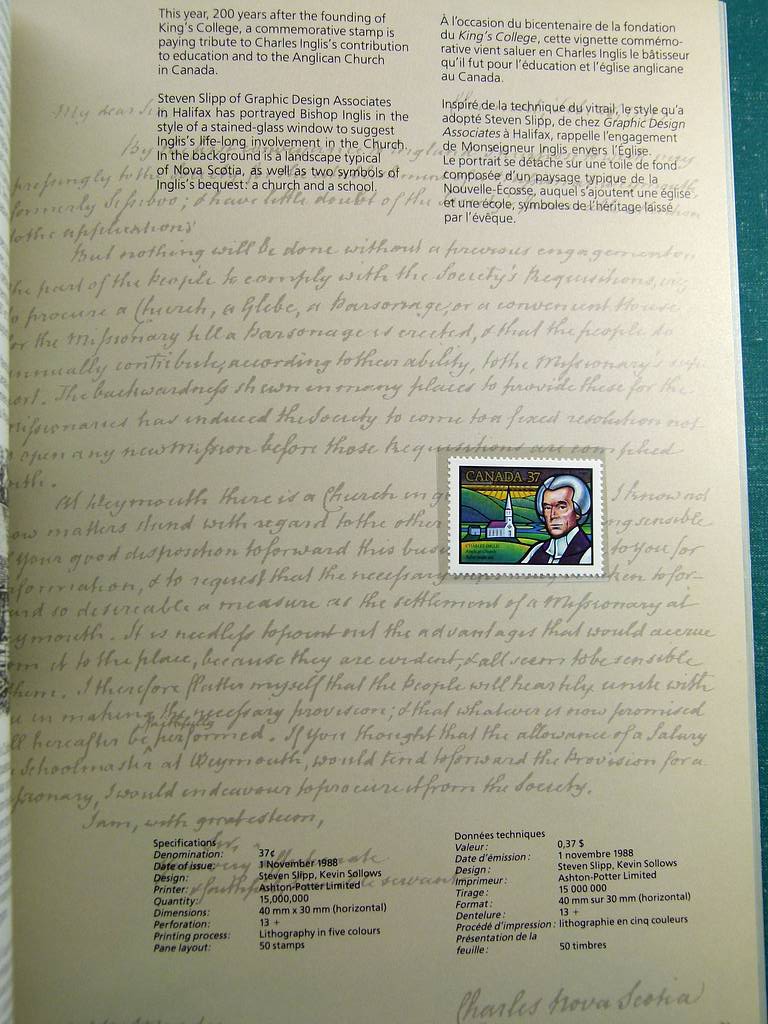 This year, 200 years after the founding of
King's College, a commemorative stamp is
paying tribute to Charles Inglis's contribution
to education and to the Anglican Church
in Canada.
Steven Slipp of Graphic Design Associates
in Halifax has portrayed Bishop Inglis in the
style of a stained-glass window to suggest
Inglis's life-long involvement in the Church.
In the background is a landscape typical
of Nova Scotia, as well as two symbols of
Inglis's bequest: a church and a school.
À l'occasion du bicentenaire de la fondation
du King's College, cette vignette commémo-
rative vient saluer en Charles Inglis le bâtisseur
qu'il fut pour l'éducation et l'église anglicane
au Canada.
Inspiré de la technique du vitrail, le style qu'a
adopté Steven Slipp, de chez Graphic Design
Associates à Halifax, rappelle l'engagement
de Monseigneur Inglis envers l'Église.
Le portrait se détache sur une toile de fond
composée d'un paysage typique de la
Nouvelle-Écosse, auquel s'ajoutent une église
et une école, symboles de l'héritage laissé
par l'évêque.
My dear
By
pressingly to the
formerly Sissiboo; & have little doubt of the
to the applications
But nothing will be done without a previous engagement on
the part of the People to comply with the Society's Requisitions,
to procure a Church, a Glebe, a Parsonage, or a convenient House
for the Missionary till a Parsonage is erected, & that the people do
annually contribute, according to their ability, to the Missionary's
ort. The backwardness shewn in many places to provide these for the
Missionaries has induced the Society to come to a fixed resolution not
open any new Mission before those Requisitions are complied
with.
At Weymouth there is a Church in I know not
ow matters stand with regard to the other ng sensible
your good disposition to forward this bus to you for
formation, & to request that the necessary ken to for-
ard so desireable a measure as the settlement of a Missionary at
ymouth. It is needless to point out the advantages that would accrue
om it to the place, because they are evident, & all seem to be sensible
them. I therefore flatter myself that the People will heartily unite with
u in making the necessary provision; & that whatever is now promised
ll hereafter be faithfully performed. If you thought that the allowance of a Salary
a Schoolmaster at Weymouth, would tend to forward the Provision for a
sionary, I would endeavour to procure it from the Society.
I am, with great esteem,
CANADA 37
CHARLES INGLIS
Specifications
Denomination: 37¢
Date of issue: 1 November 1988
Design: Steven Slipp, Kevin Sollows
Printer: Ashton-Potter Limited
Quantity: 15,000,000
Dimensions: 40 mm x 30 mm (horizontal)
Perforation: 13 +
Printing process: Lithography in five colours
Pane layout: 50 stamps
Données techniques
Valeur: 0,37 $
Date d'émission: 1 novembre 1988
Design: Steven Slipp, Kevin Sollows
Imprimeur: Ashton-Potter Limited
Tirage: 15 000 000
Format: 40 mm sur 30 mm (horizontal)
Dentelure: 13 +
Procédé d'impression: lithographie en cinq couleurs
Présentation de la
feuille: 50 timbres
Charles Nova Scotia